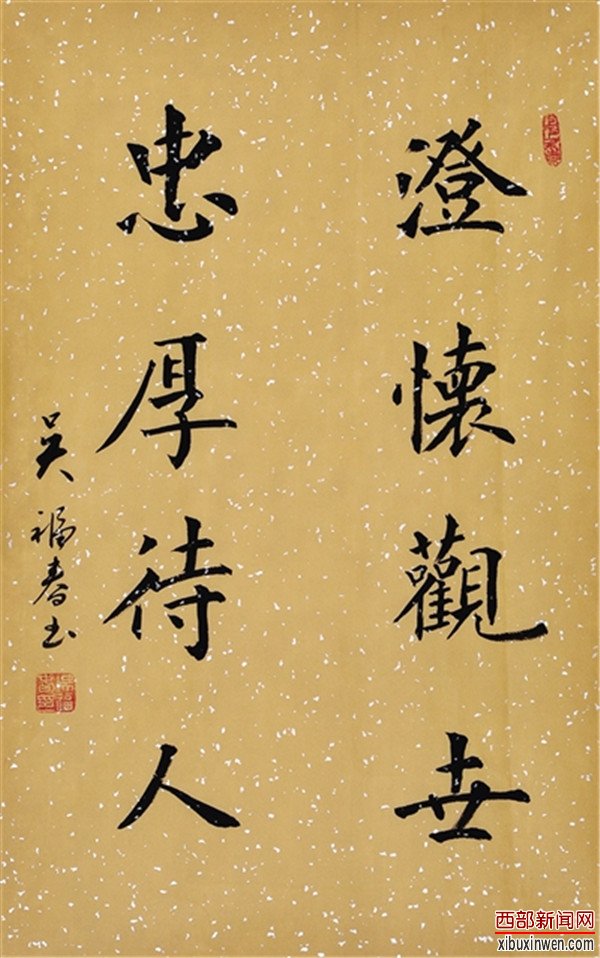 澄懷觀世
忠厚待人
吴福春书
西部新闻网
xibuxinwen.com